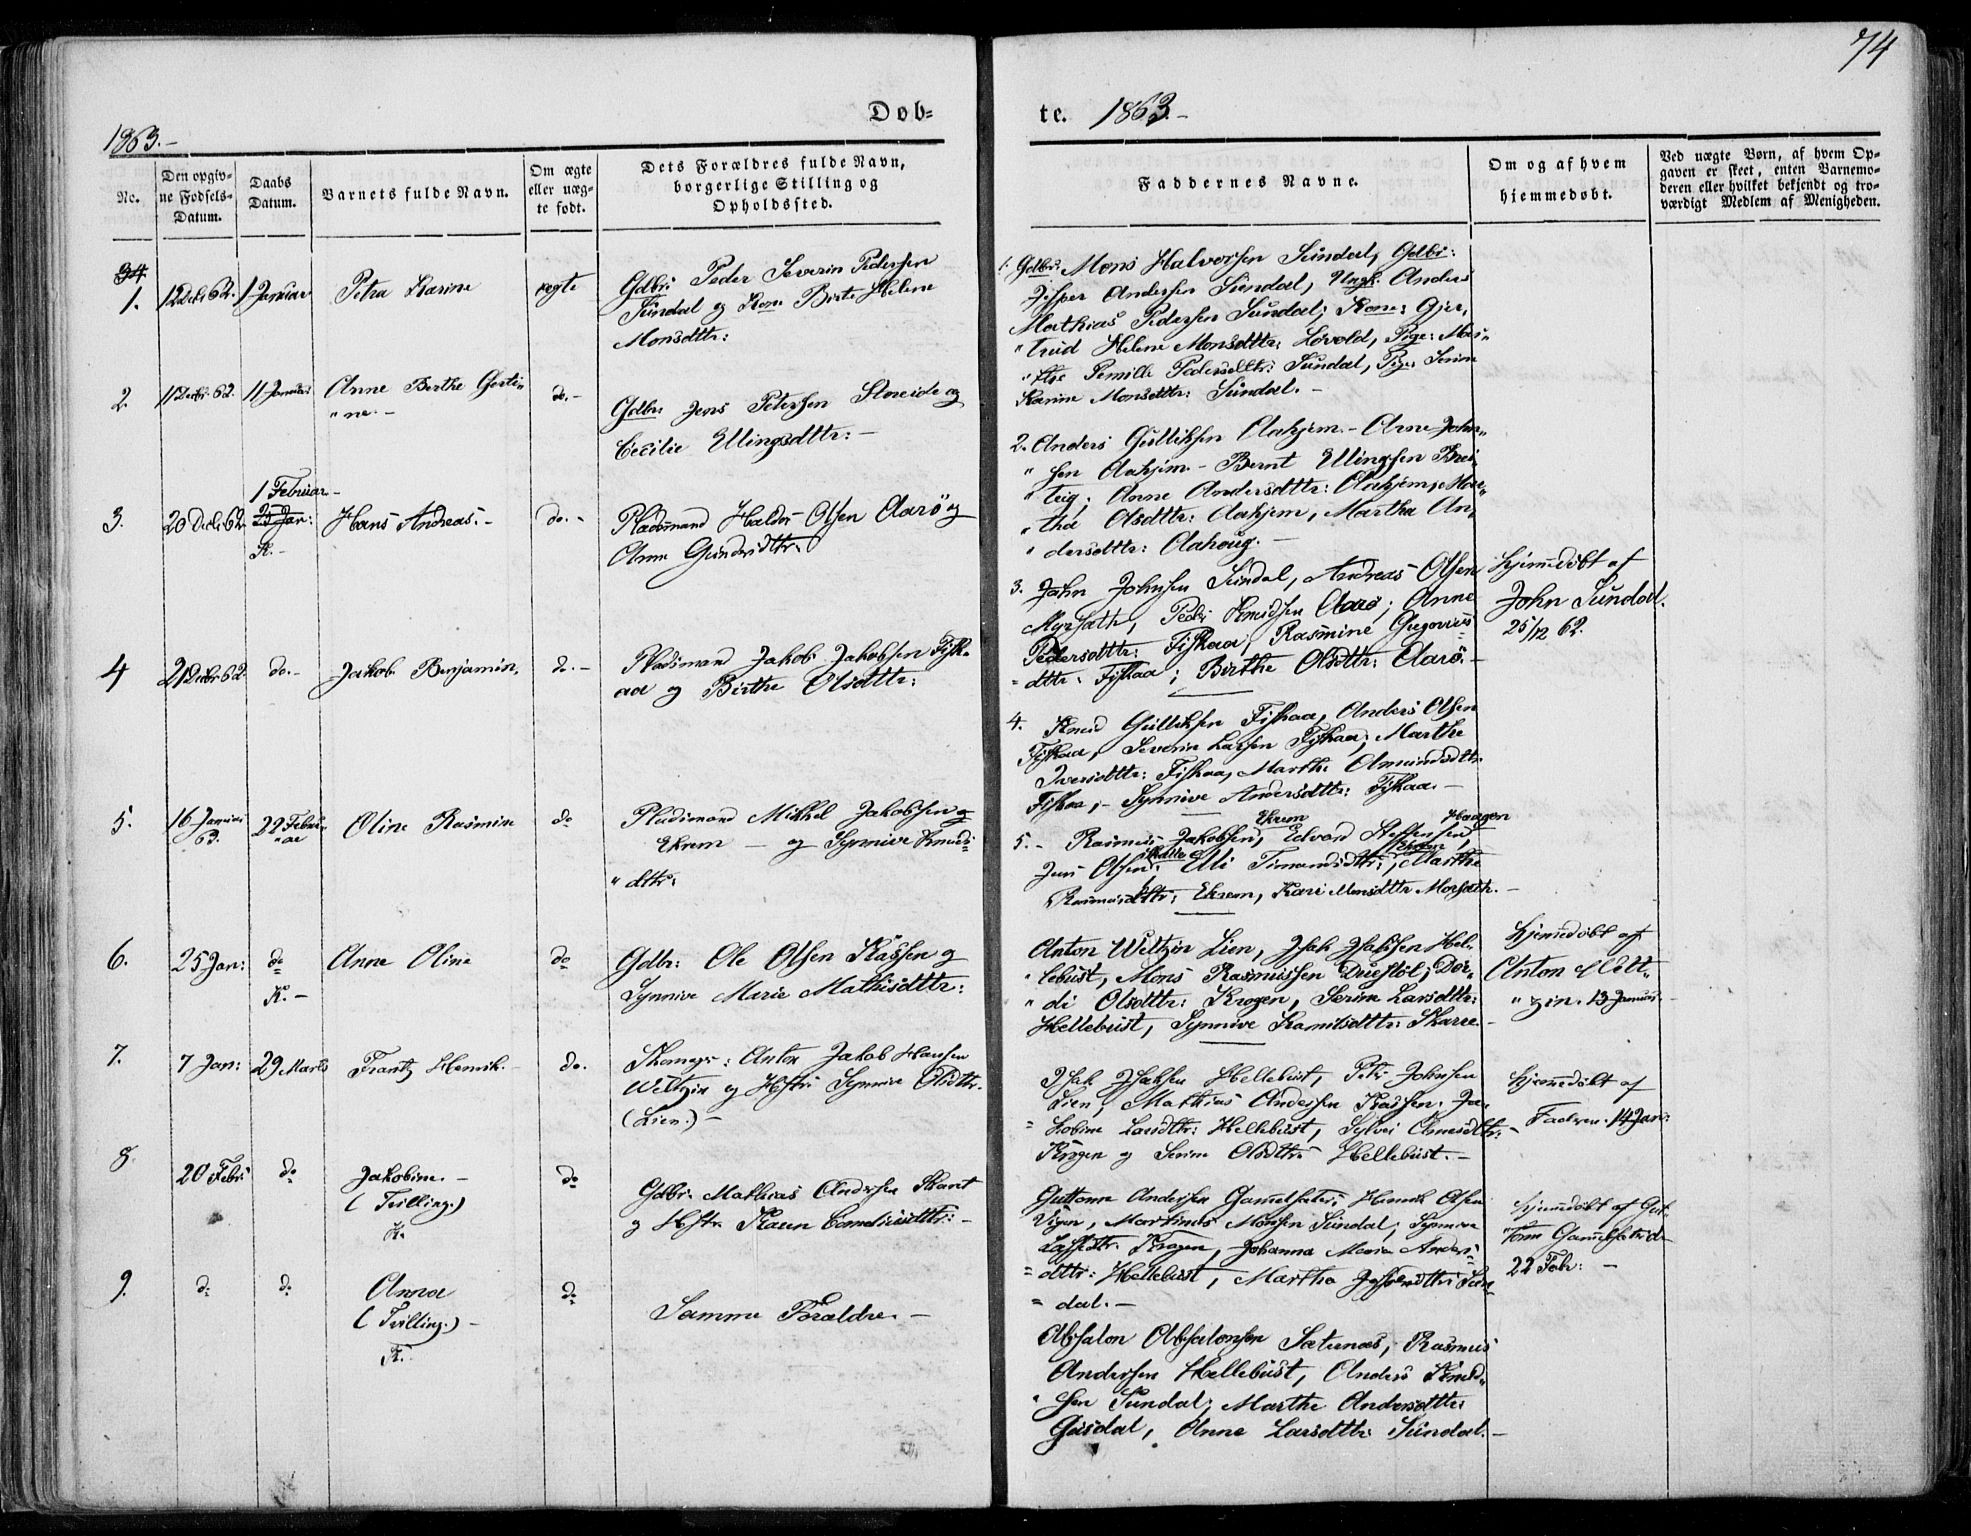 74
Døb=
te. 1863.-
1863.-
No.
Den opgiv-
ne Fødsels-
Datum.
Daabs
Datum.
Barnets fulde Navn.
Om ægte
eller uæg-
te født.
Dets Forældres fulde Navn,
borgerlige Stilling og
Opholdssted.
Faddernes Navne.
Om og af hvem
hjemmedøbt.
Ved uægte Børn, af hvem Op-
gaven er skeet, enten Barnemo-
deren eller hvilket bekjendt og tro-
værdigt Medlem af Menigheden.
34
1. 12 Dcbr 62. 1 Januar Petra Karine ægte
Gdbr: Peder Severin Pedersen
Sundal og Kone Birte Helene
Monsdttr:
1. Gdbr: Mons Halvorsen Sundal, Gdbr:
Jesper Andersen Sundal, Ungk: Anders
Mathias Pedersen Sundal; Kone: Gjer,
"trud Helene Monsdttr: Løvold, Pige: Mar"
Pernille Pedersdttr: Sundal, Pige: Serine
Karine Monsdttr: Sundal.-
2. 11 Januar Anne Berthe Gurti"
"ne.- do.-
Gdbr: Jens Petersen Sloreide og
Cecilie Ellingsdttr:-
2. Anders Gulliksen Aahjem.- Arne John"
"sen Aahjem.- Bernt Ellingsen Brei"
"teig; Anne Andersdttr: Aahjem, Mar"
"tha Olsdttr: Aahjem, Martha An,
"dersdttr: Aahoug.-
3. 20 Dcbr 62.
1 Februar-
25 Jan:
K.-
Hans Andreas.- do.-
Pladsmand Haldor Olsen Aarø og
Anne
3. John Johnsen Sundal, Andreas Olsen
Myrsæth, Peder Knudsen Aarø; Anne
Pedersdttr: Fiskaa, Rasmine Gregorius=
=dttr: Fiskaa; Birthe Olsdttr: Aarø.-
Hjemmedøbt af
John Sundal.
25/12 62.
4 21 Dcbr 62 do.- Jakob Benjamin, do.-
Pladsmand Jakob Jakobsen Fisk-
aa og Birthe Olsdttr:
4. Knud Gulliksen Fiskaa, Anders Olsen
Fiskaa, Severin Larsen Fiskaa; Marthe
Iversdttr: Fiskaa, Marthe Amundsdttr
Fiskaa,- Synnive Andersdttr: Fiskaa.-
5. 16 Januar
63.
22 Febru"
"ar
Oline Rasmine do
Pladsmand Mikkel Jakobsen og
Ekrem - og Synnive Knuds=
"dttr:
Ekrem Haagen
5.- Rasmus Jakobsen, Edvard Steffensen,
Jens Olsen; Elli Timandsdttr:, Marthe
Rasmusdttr: Ekrem, Kari Monsdttr Morsæth.-
6. 25 Jan: do
K.-
Anne Oline do
Gdbr: Ole Olsen Rassen og
Synnive Marie Mathisdttr:
Anton Weltzin Lien, Isak Isaksen Hel"
"lebust, Mons Rasmussen Duestøl; Dor"
"di Olsdttr: Krogen, Serine Larsdttr:
Hellebust, Synnive
Hjemmedøbt af
Anton Welt"
"zin. 13 Januar.
7. 7 Jan: 29 Marts Frantz Henrik.- do.
Anton Jakob Hansen
Weltzin og Hstr: Synnive Olsdttr.
(Lien.)-
Isak Isaksen Hellebust, Peter Johnsen
Lien, Mathias Andersen Rassen. Ja"
=kobine Larsdttr: Hellebust, Sylvei
Krogen og Serine Olsdttr: Hellebust.-
Hjemmedøbt af
Faderen. 14 Jan:
8. 20 Febr: do Jakobine.-
(Tvilling.)
K.
do
Gdbr: Mathias Andersen Skaret
og Hstr. Karen Corneliusdttr:-
Guttorm Andersen Gammelsæter; Henrik Olsen
Vigen, Martinus Monsen Sundal, Synnive
Krogen, Johanna Maria Anders=
=dttr: Hellebust, Martha Jespersdttr: Sun"
=dal.-
Hjemmedøbt af Gut"
"torm Gammelsæterd
22 Febr: -
9. do do Anna
(Tvilling.)-
K.
do
Samme Forældre.-
Absalon Absalonsen Sætrenæs, Rasmus
Andersen Hellebust, Anders Knud"
"sen Sundal; Marthe Andersdttr:
Gusdal, Anne Larsdttr: Sundal.-